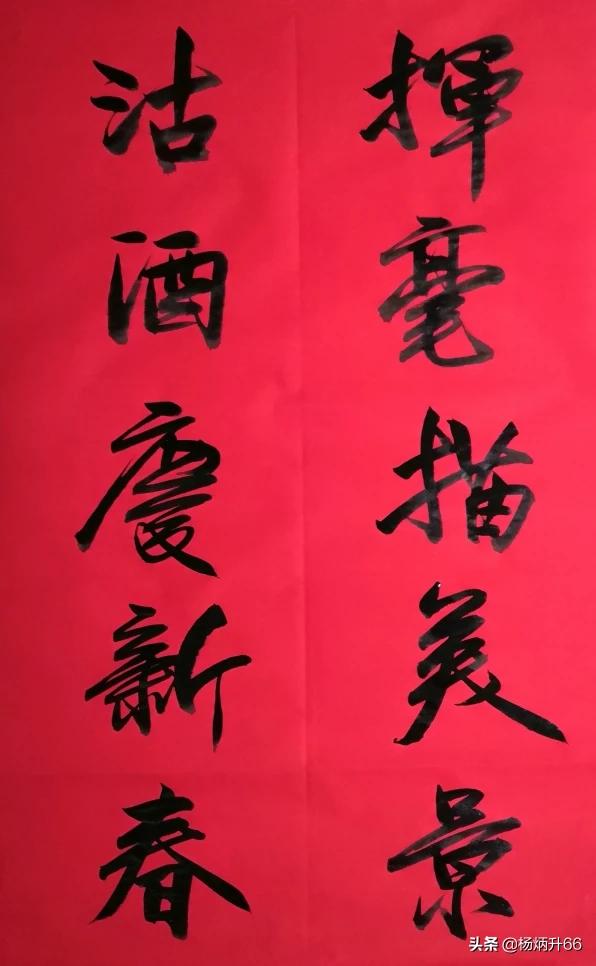 揮毫描美景
沽酒慶新春
头条 @杨炳升66